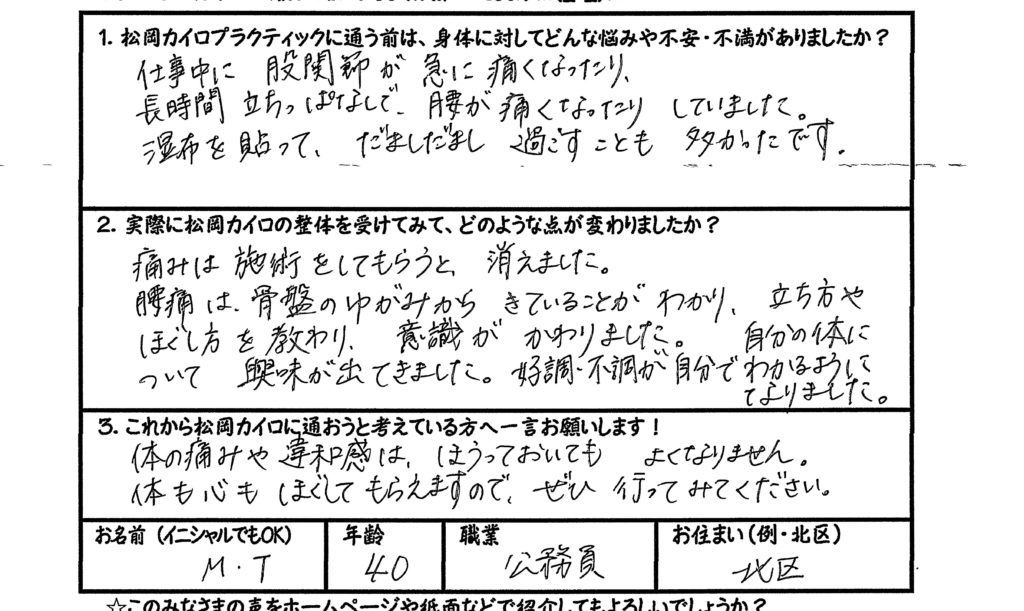 1. 松岡カイロプラクティックに通う前は、身体に対してどんな悩みや不安・不満がありましたか？
仕事中に 股関節が 急に 痛くなったり、
長時間 立ちっぱなしで、腰が 痛くなったり していました。
湿布を貼って、 だましだまし 過ごすことも 多かったです。
2. 実際に松岡カイロの整体を受けてみて、どのような点が変わりましたか？
痛みは 施術をしてもらうと、消えました。
腰痛は、骨盤のゆがみから きていることが わかり、立ち方や
ほぐし方を教わり、意識が かわりました。 自分の体に
ついて 興味が出てきました。好調・不調が自分でわかるように
なりました。
3. これから松岡カイロに通おうと考えている方へ一言お願いします！
体の痛みや 違和感は、ほうっておいても よくなりません。
体も心も ほぐしてもらえますので、ぜひ 行ってみてください。
お名前（イニシャルでもOK） 年齢 職業 お住まい（例・北区）
M・T 40 公務員 北区
☆このみなさまの声をホームページや紙面などで紹介してもよろしいでしょうか？